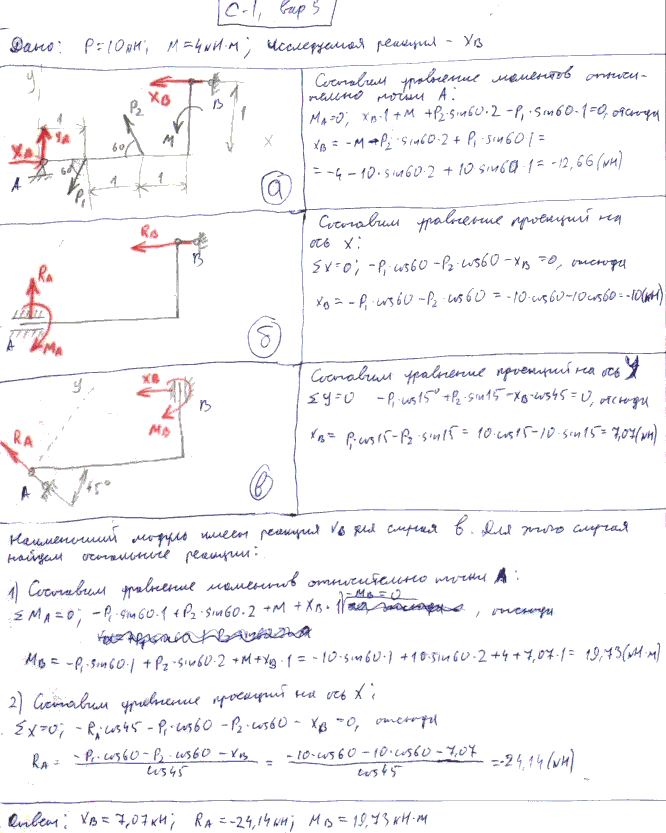 С-1, вар 5
Дано: P=10кН; M=4кН·м; Исследуемая реакция - XB
y
XB
B
P2
1
YA
M
1
XA
60
x
A
60
P1
1
1
а
Составим уравнение моментов относи-
тельно точки A:
MA=0; XB·1+M+P2·sin60·2-P1·sin60·1=0, отсюда
XB=-M-P2·sin60·2+P1·sin60·1=
=-4-10·sin60·2+10·sin60·1=-12,66(кН)
RB
B
RA
A
MA
б
Составим уравнение проекций на
ось X:
ΣX=0; -P1·cos60-P2·cos60-XB=0, отсюда
XB=-P1·cos60-P2·cos60=-10·cos60-10cos60=-10(кН)
y
XB
B
MB
RA
A
45°
в
Составим уравнение проекций на ось Y
ΣY=0 -P1·cos15°+P2·sin15-XB·cos45=0, отсюда
XB=P1·cos15-P2·sin15=10·cos15-10·sin15=7,07(кН)
Наименьший модуль имеет реакция XB для случая в. Для этого случая
найдем остальные реакции:
1) Составим уравнение моментов относительно точки A:
ΣMA=0; -P1·sin60·1+P2·sin60·2+M+XB·1-MB=0, отсюда
MB=-P1·sin60·1+P2·sin60·2+M+XB·1=-10·sin60·1+10·sin60·2+4+7,07·1=19,73(кН·м)
2) Составим уравнение проекций на ось X:
ΣX=0; -RA·cos45-P1·cos60-P2·cos60-XB=0, отсюда
RA=(-P1·cos60-P2·cos60-XB)/cos45=(-10·cos60-10·cos60-7,07)/cos45=-24,14(кН)
Ответ: XB=7,07кН; RA=-24,14кН; MB=19,73кН·м